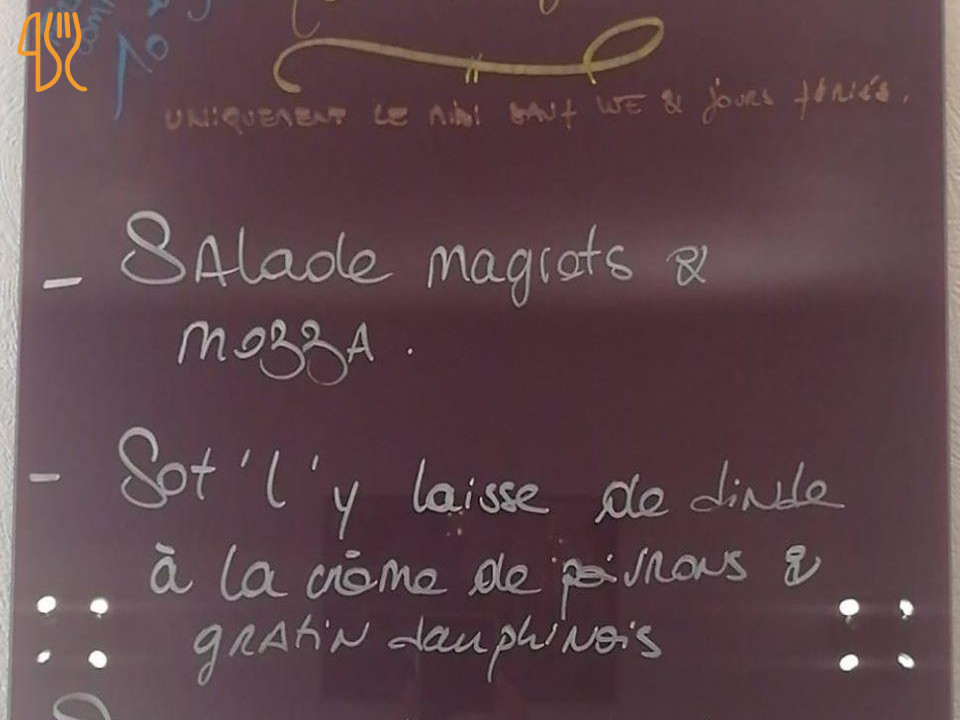 UNIQUEMENT LE MIDI SAUF WE & jours fériés.
- SAlade magrets &
mozzA.
- Sot 'l'y laisse de dinde
à la crème de poivrons &
gRAtiN dauphiNois